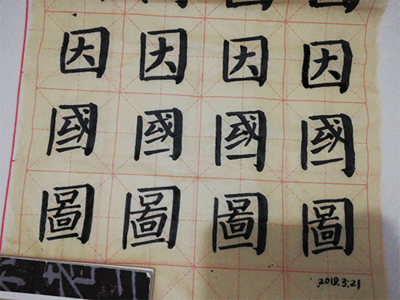 因因因因
國國國國
圖圖圖圖
2018.3.21